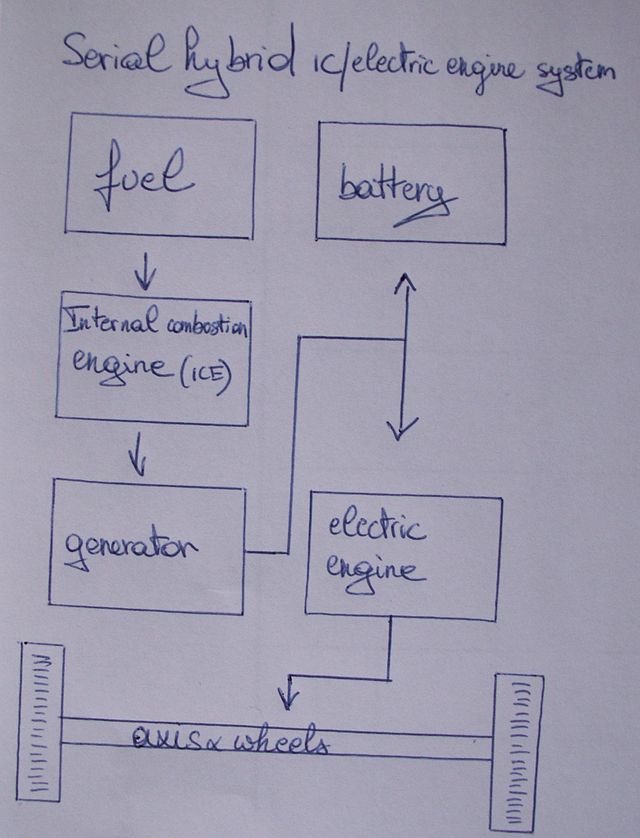 Serial hybrid ic/electric engine system
fuel
battery
Internal combostion
engine (ICE)
generator
electric
engine
axis & wheels